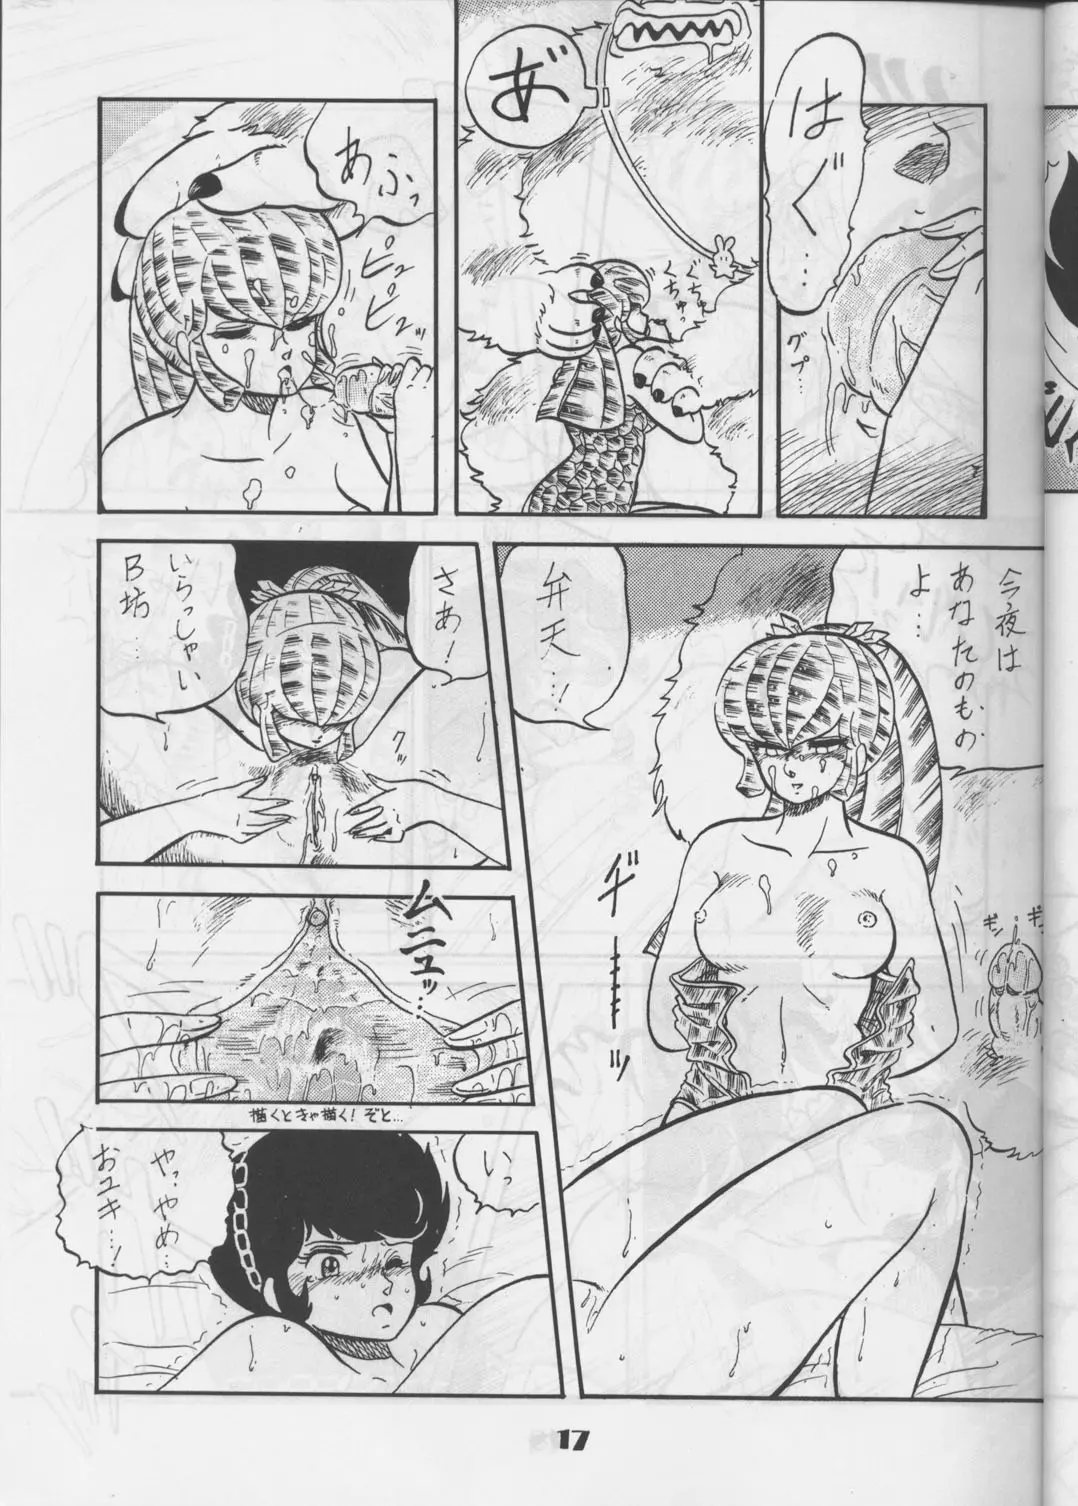 はぐ…
グプ…
あ゙
くちゅ
くちゅっ
あふっ
ピュ
ピピュッ
今夜は
あなたのもの
よ…
弁天…!
ギ
シッ
ギン
ギン
さあ!
いらっしゃい
B坊…
クッ
ムニュッ…
描くときゃ描く!ぞと…
いっ
やっやめ…
おユキ…!
17